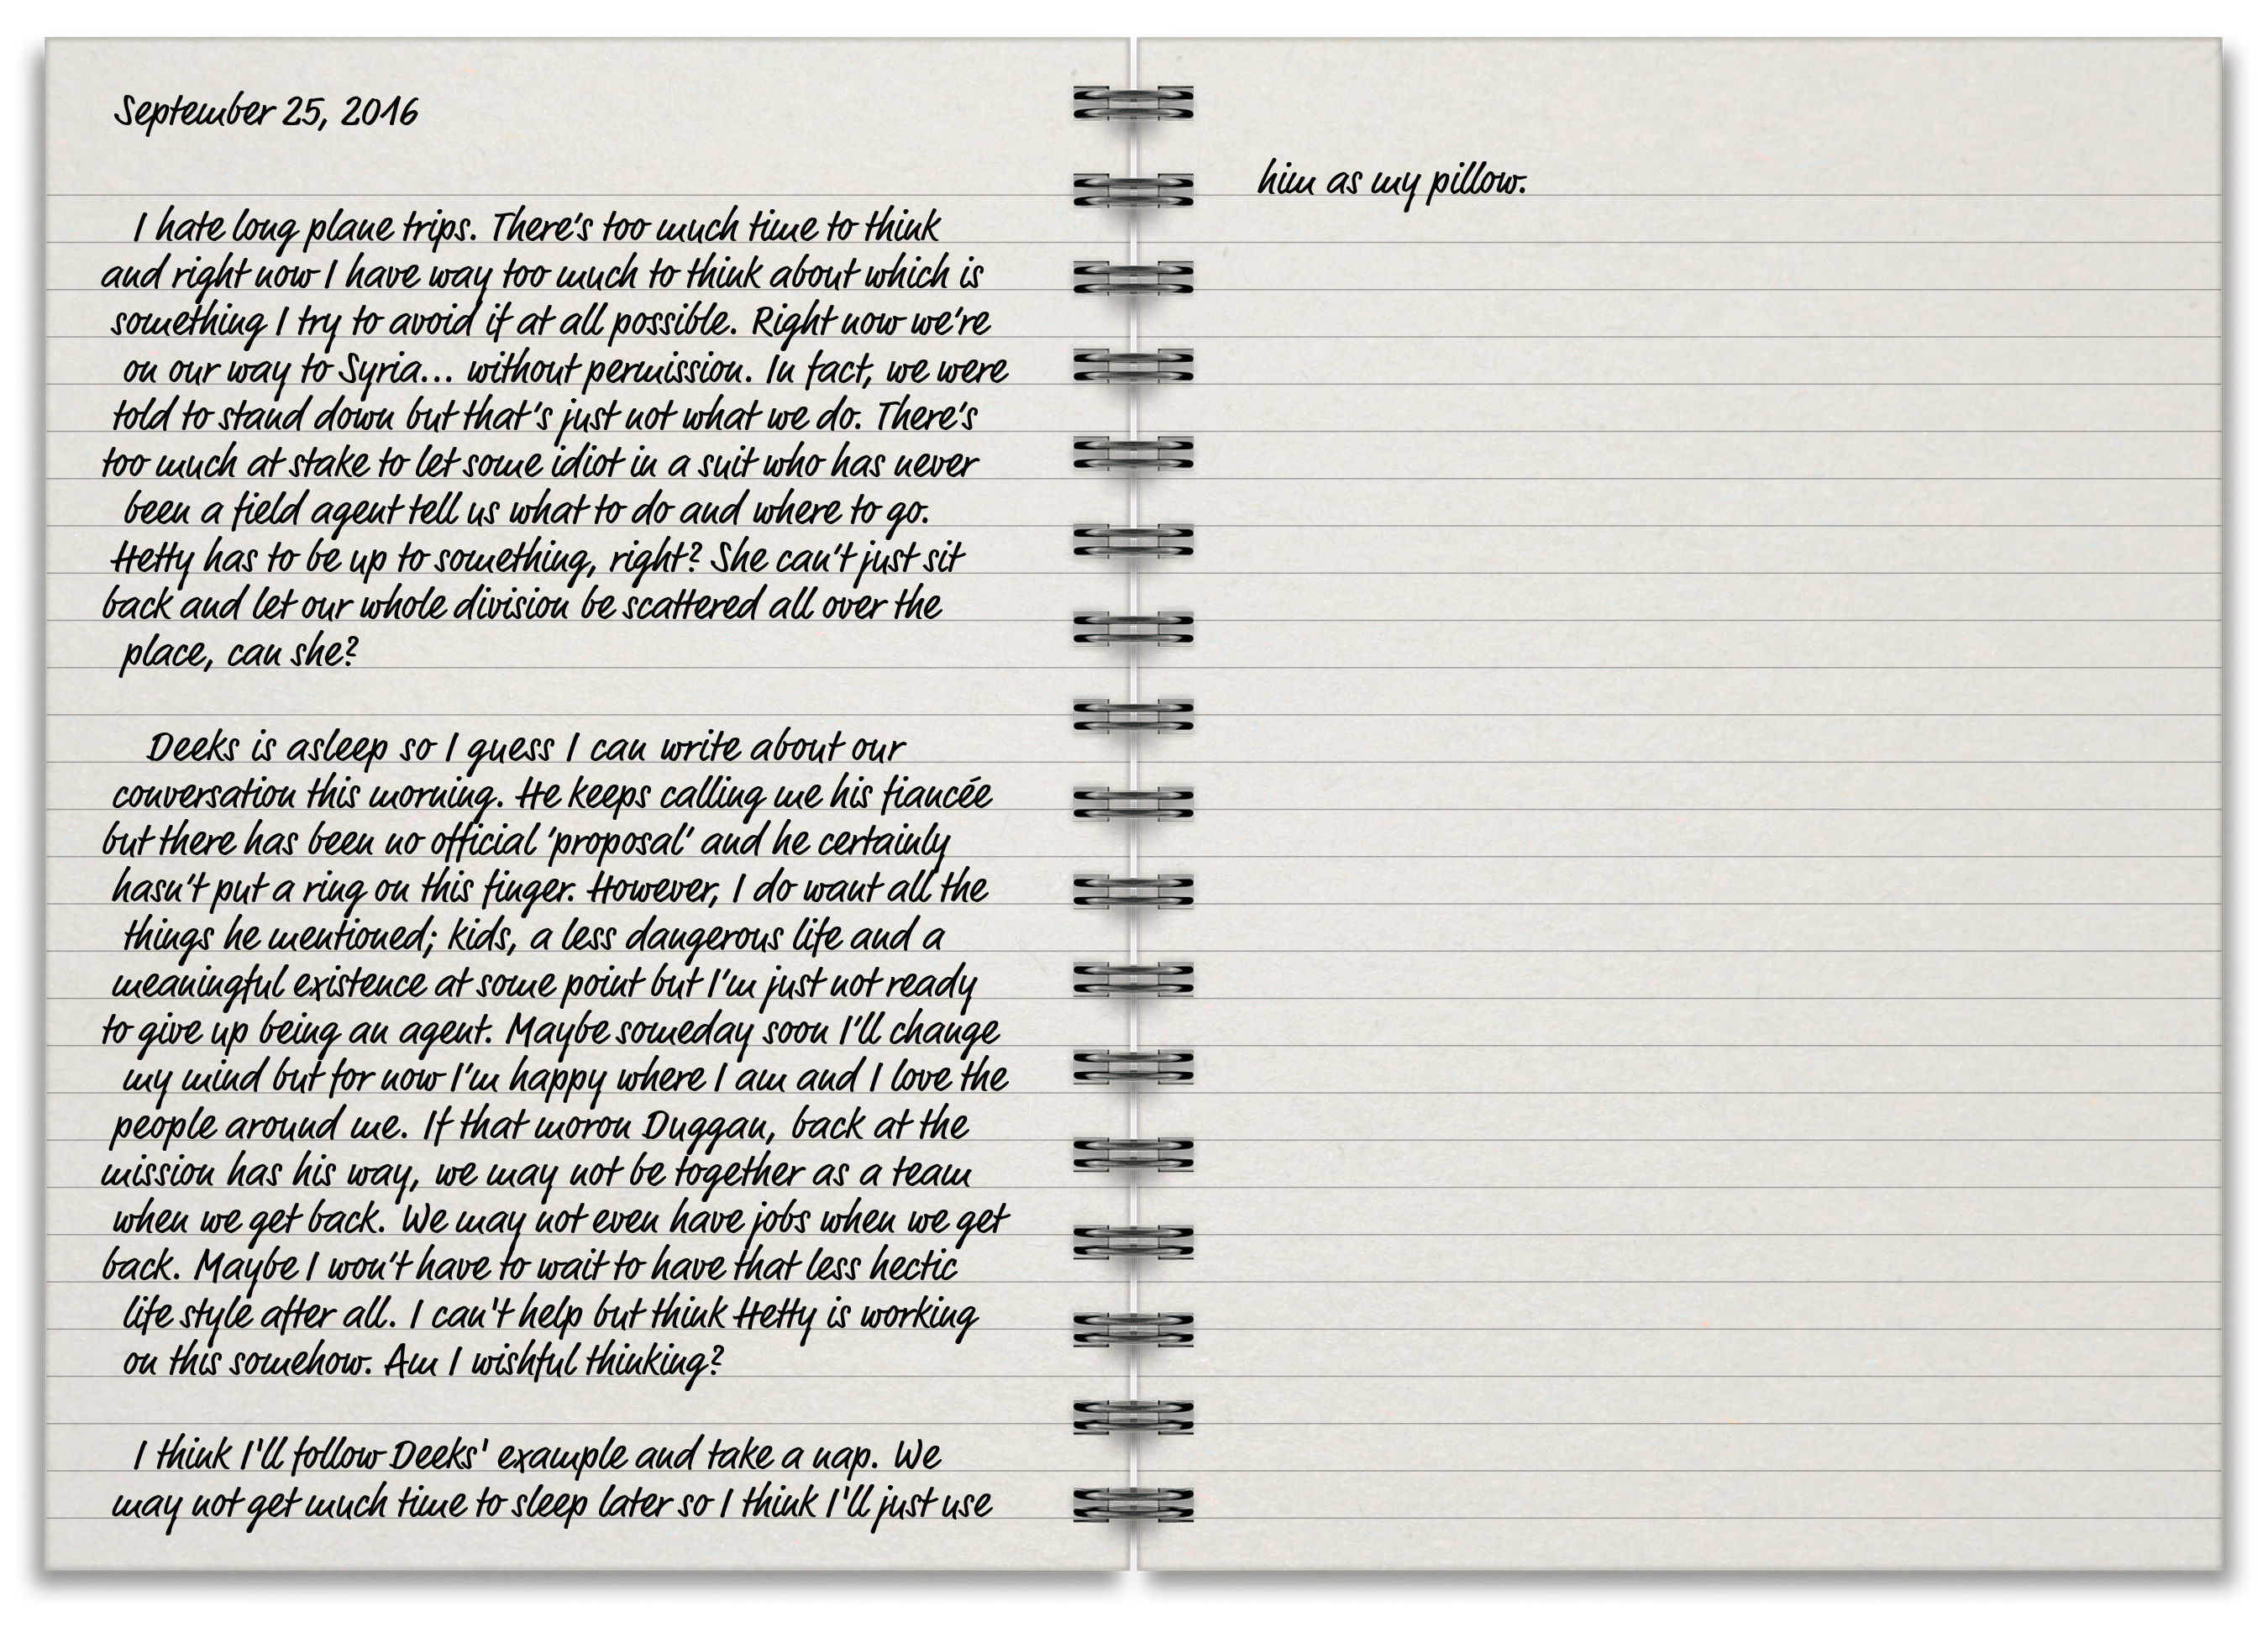 September 25, 2016
I hate long plane trips. There's too much time to think
and right now I have way too much to think about which is
something I try to avoid if at all possible. Right now we're
on our way to Syria... without permission. In fact, we were
told to stand down but that's just not what we do. There's
too much at stake to let some idiot in a suit who has never
been a field agent tell us what to do and where to go.
Hetty has to be up to something, right? She can't just sit
back and let our whole division be scattered all over the
place, can she?
Deeks is asleep so I guess I can write about our
conversation this morning. He keeps calling me his fiancée
but there has been no official 'proposal' and he certainly
hasn't put a ring on this finger. However, I do want all the
things he mentioned; kids, a less dangerous life and a
meaningful existence at some point but I'm just not ready
to give up being an agent. Maybe someday soon I'll change
my mind but for now I'm happy where I am and I love the
people around me. If that moron Duggan, back at the
mission has his way, we may not be together as a team
when we get back. We may not even have jobs when we get
back. Maybe I won't have to wait to have that less hectic
life style after all. I can't help but think Hetty is working
on this somehow. Am I wishful thinking?
I think I'll follow Deeks' example and take a nap. We
may not get much time to sleep later so I think I'll just use
him as my pillow.